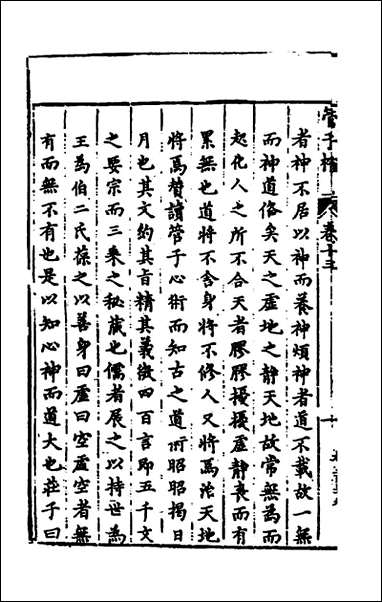 管子榷
卷十三
者神不居以神而養神煩神者道不載故一無
而神道俻矣天之虛地之靜天地故常無為而
起化人之所不合天者膠膠擾擾虛靜喪而有
累無也道將不舍身將不修人又將為治天地
將焉賛讀管子心術而知古之道術昭昭揭日
月也其文約其旨精其義微四百言即五千文
之要宗而三乘之秘蔵也儒者展之以持世為
王為伯二氏葆之以善身曰虛曰空虛空者無
有而無不有也是以知心神而道大也莊子曰